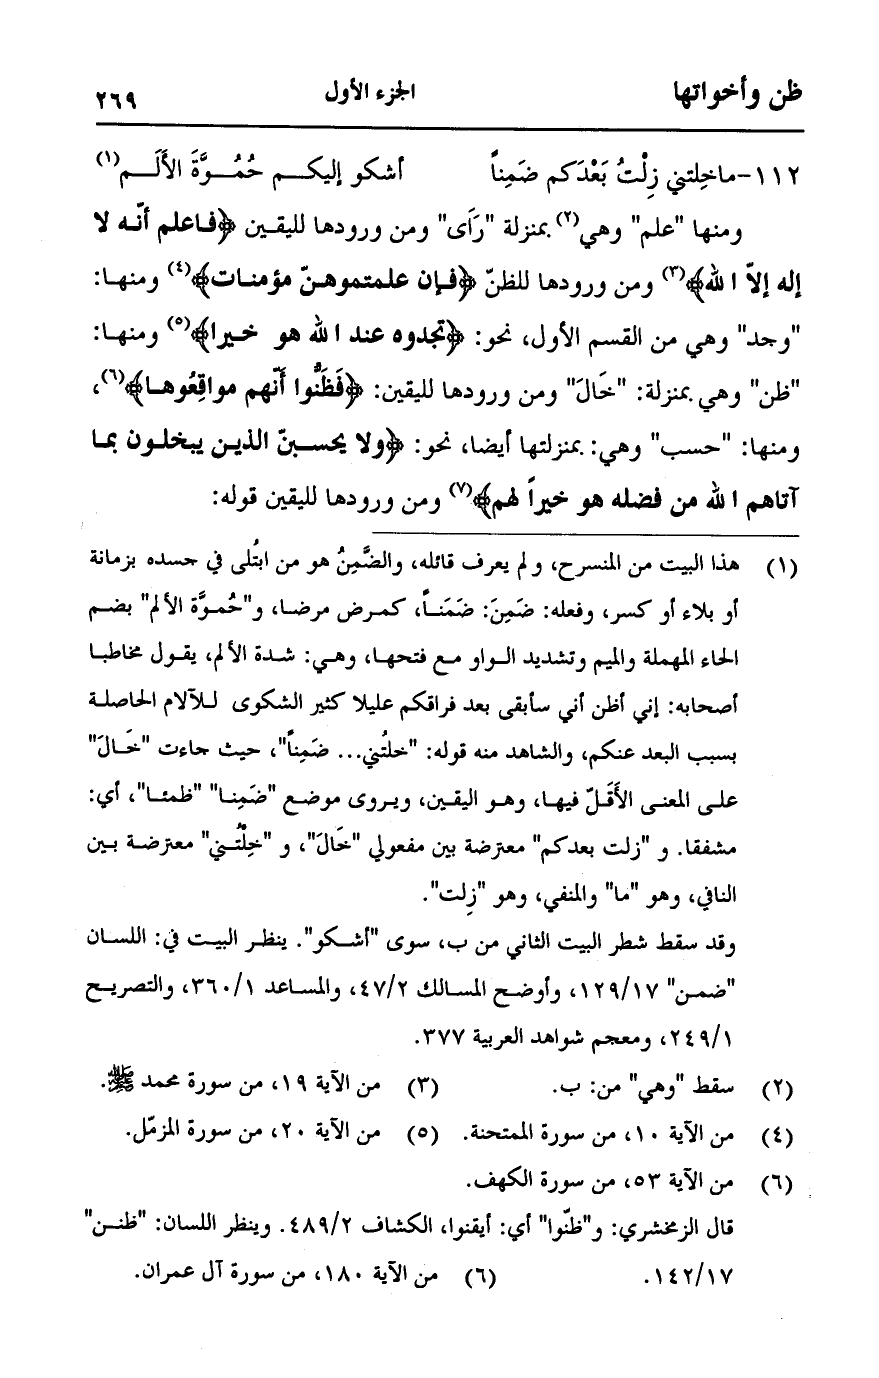 ظن وأخواتها الجزء الأول ٢٦٩
١١٢-ما خِلتني زِلْتُ بَعْدَكم ضَمِناً أشكو إليكــم حُمُــوَّةَ الأَلَــم(١)
ومنها "علم" وهي(٢) بمنزلة "رَأى" ومن ورودها لليقين ﴿فـاعلم أنّـه لا
إله إلاّ الله﴾(٣) ومن ورودها للظنّ ﴿فـإن علمتموهـنّ مؤمنـات﴾(٤) ومنهـا:
"وجد" وهي من القسم الأول، نحو: ﴿تجدوه عند الله هو خـيرا﴾(٥) ومنهـا:
"ظن" وهي بمنزلة: "خَالَ" ومن ورودها لليقين: ﴿فَظَنُّوا أَنّهم مواقِعُوهـا﴾(٦)،
ومنها: "حسب" وهي: بمنزلتها أيضا، نحو: ﴿ولا يحسبنّ الذيـن يبخلـون بمـا
آتاهم الله من فضله هو خيراً لهم﴾(٧) ومن ورودها لليقين قوله:
(١) هذا البيت من المنسرح، ولم يعرف قائله، والضَّمِنُ هو من ابتُلى في جسده بزمانة
أو بلاء أو كسر، وفعله: ضَمِنَ: ضَمَنـاً، كمـرض مرضـا، و"حُمـوَّة الألم" بضـم
الحاء المهملة والميم وتشديد الـواو مـع فتحهـا، وهـي: شـدة الألم، يقـول مخاطبـا
أصحابه: إني أظن أني سأبقى بعد فراقكم عليلا كثير الشكوى لـلآلام الحاصلـة
بسبب البعد عنكم، والشاهد منه قوله: "خلتُني... ضَمِناً"، حيث جاءت "خَـالَ"
علـى المعنى الأَقَـلّ فيهـا، وهـو اليقين، ويـروى موضـع "ضَمِنـا" "ظمئـا"، أي:
مشفقا. و "زلت بعدكم" معترضة بين مفعولي "خَالَ"، و "خِلْتُـني" معترضة بـين
النافي، وهو "ما" والمنفي، وهو "زِلت".
وقد سقط شطر البيت الثاني من ب، سوى "أشـكو". ينظـر البيـت في: اللسـان
"ضمـن" ١٢٩/١٧، وأوضـح المسـالك ٤٧/٢، والمساعد ٣٦٠/١، والتصريـح
٢٤٩/١، ومعجم شواهد العربية ٣٧٧.
(٢) سقط "وهي" من: ب. (٣) من الآية ١٩، من سورة محمد ﷺ.
(٤) من الآية ١٠، من سورة الممتحنة. (٥) من الآية ٢٠، من سورة المزمّل.
(٦) من الآية ٥٣، من سورة الكهف.
قال الزمخشري: و"ظنّوا" أي: أيقنوا، الكشاف ٤٨٩/٢. وينظر اللسان: "ظنـن"
١٤٢/١٧. (٦) من الآية ١٨٠، من سورة آل عمران.